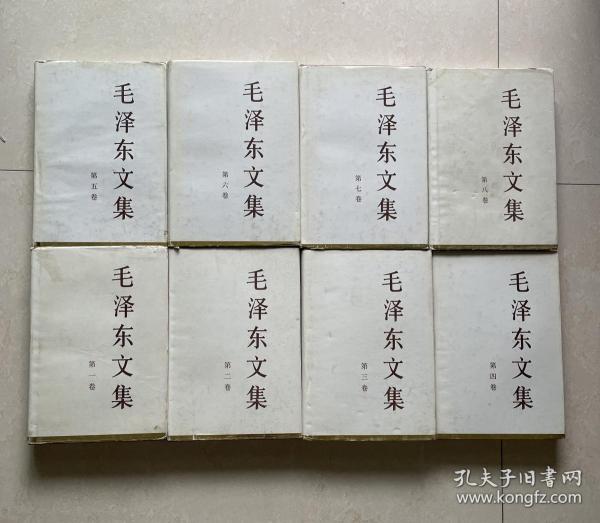 毛泽东文集
第五卷
毛泽东文集
第六卷
毛泽东文集
第七卷
毛泽东文集
第八卷
毛泽东文集
第一卷
毛泽东文集
第二卷
毛泽东文集
第三卷
毛泽东文集
第四卷
孔夫子旧书网
www.kongfz.com